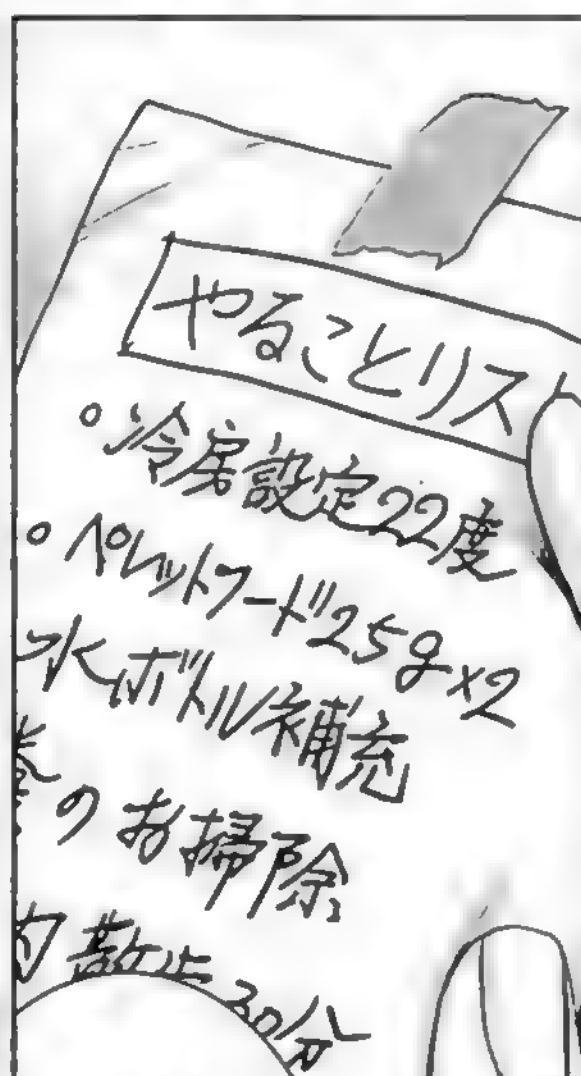 やることリス
冷房設定22度
ペレットフード25g×2
水ボトル補充
のお掃除
内散歩30分